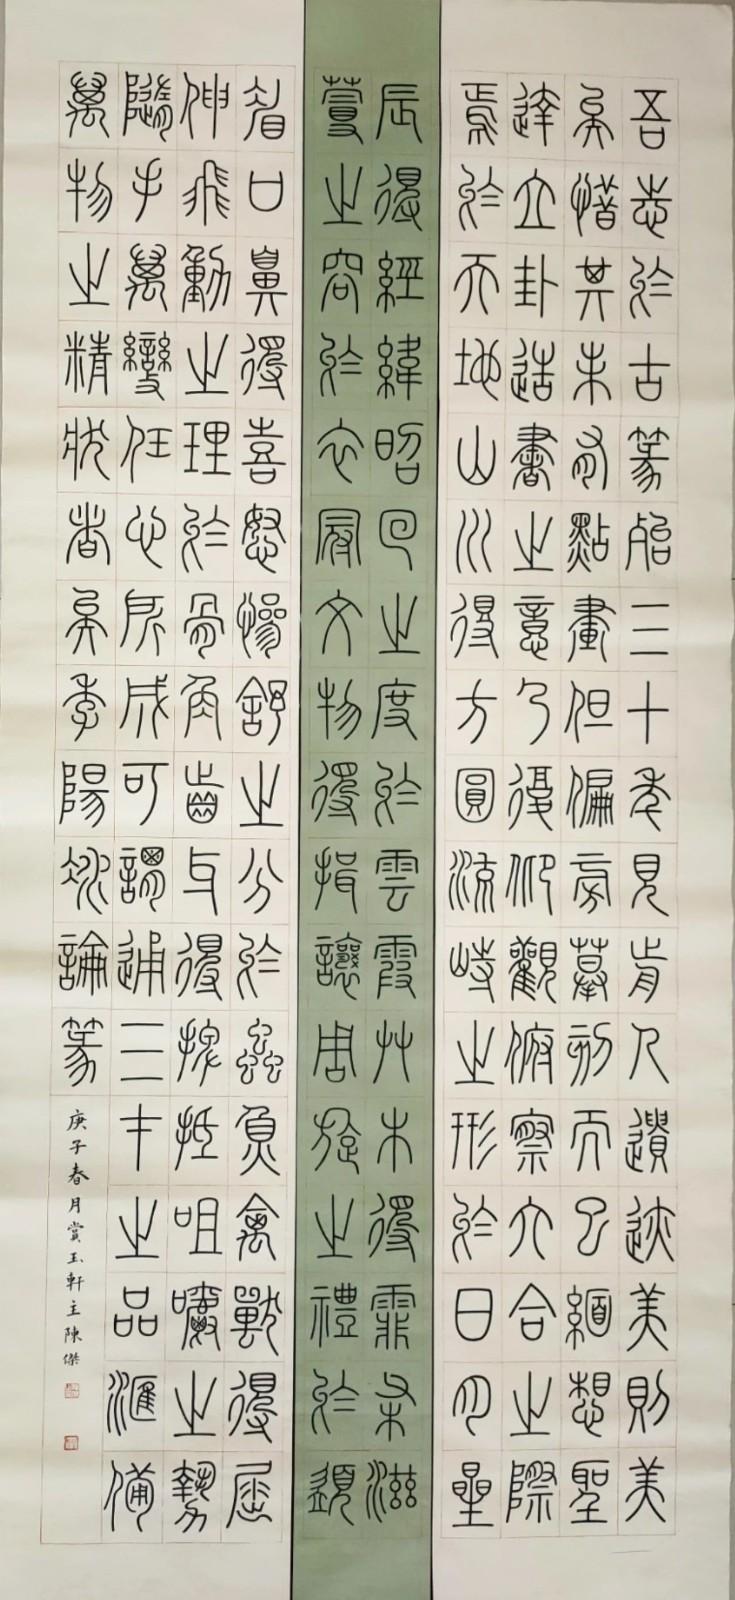 吾志於古篆殆三十年見前人遺迹美則美
矣惜其未有點畫但偏旁摹刻而已緬想聖
達立卦造書之意乃復仰觀俯察六合之際
焉於天地山川得方圓流峙之形於日月星
辰得經緯昭回之度於雲霞艸木得霏布滋
蔓之容於衣冠文物得揖讓周旋之禮於鬚
眉口鼻得喜怒慘舒之分於蟲魚禽獸得屈
伸飛動之理於骨角齒牙得擺抵咀嚼之勢
隨手萬變任心所成可謂通三才之品匯備
萬物之精狀者矣李陽冰論篆
庚子春月賞玉軒主陳傑